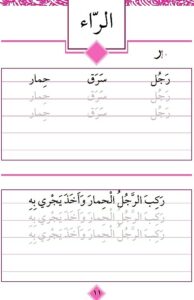 الرّاء
ر
رَجُل سَرَقَ حِمار
رَجُل سَرَقَ حِمار
رَجُل سَرَقَ حِمار
رَكِبَ الرَّجُلُ الْحِمارَ وَأَخَذَ يَجْري بِهِ
رَكِبَ الرَّجُلُ الْحِمارَ وَأَخَذَ يَجْري بِهِ
رَكِبَ الرَّجُلُ الْحِمارَ وَأَخَذَ يَجْري بِهِ
١١